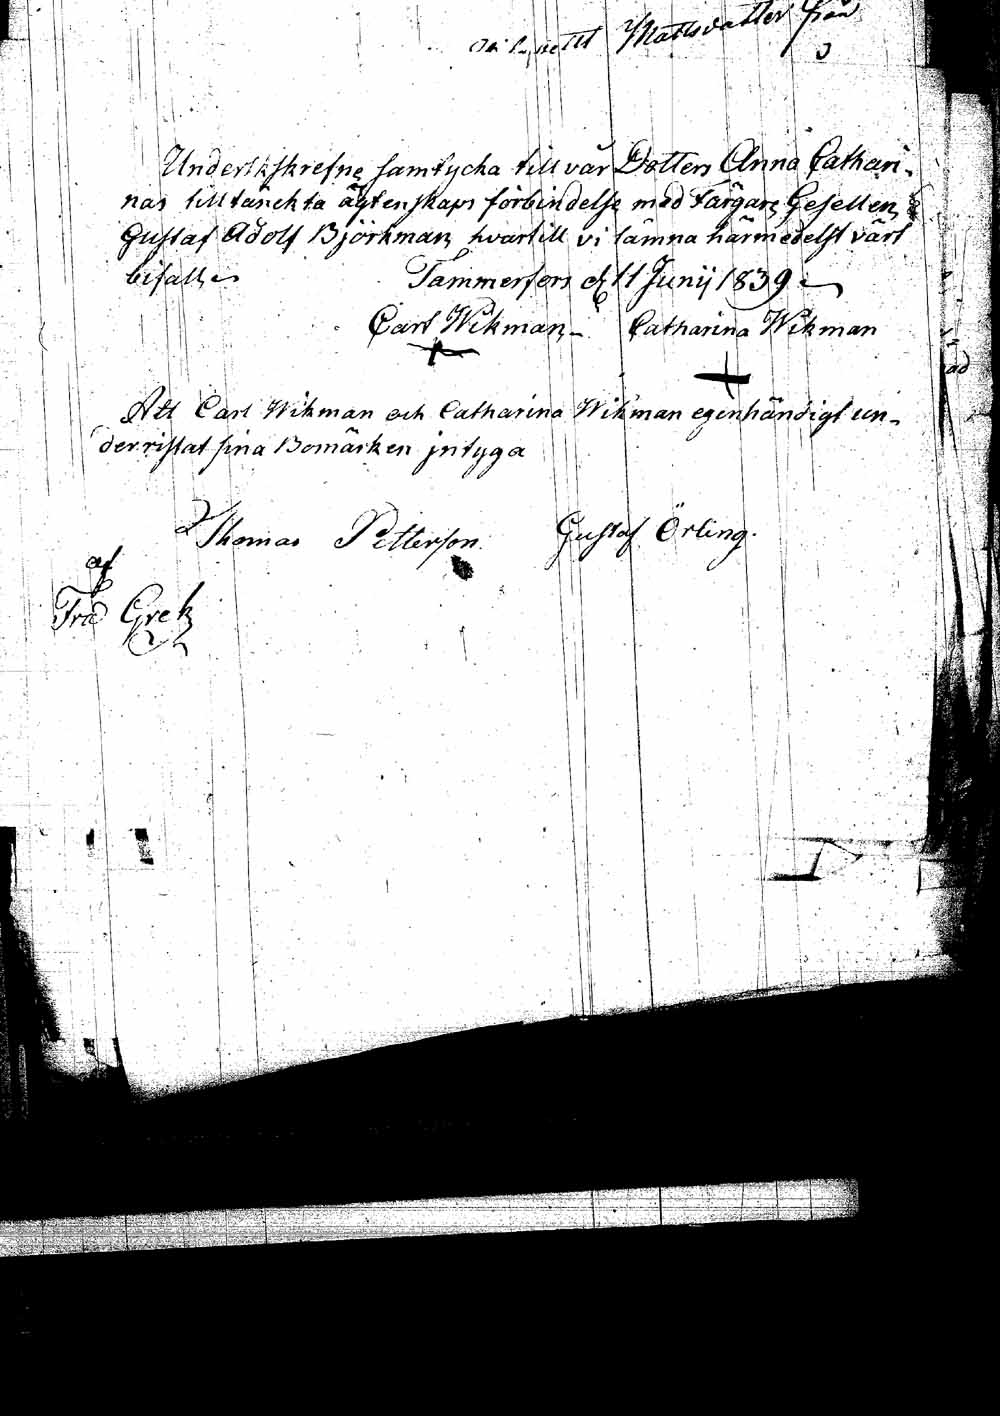 Mattsdatter från
Underskrefne samtycka till vår Dotters Anna Cathari-
nas tilltänckta ägtenskaps förbindelse med Färgare Gesellen
Gustaf Adolf Björkman, hvartill vi lämna härmedelst vårt
bifall.
Tammerfors d 11 Junij 1839.
Carl Wikman - Catharina Wikman
Att Carl Wikman och Catharina Wikman egenhändigt un-
derristat sina Bomärken jntyga
Thomas Petterson Gustaf Örling.
af